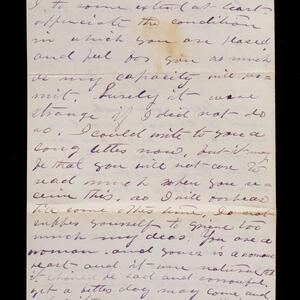 I, to some extent at least
appreciate the condition
in which you are placed
and feel for you as much
as my capacity will per-
mit. Surely it were
strange if I did not do
so. I could write to you a
long letter now, but it may
be that you will not care to
read much when you re-
ceive this, so I will forbear
till some other time. Do not
suffer yourself to grieve too
much my dear. You are a
woman and yours is a womans
heart and it were natural
it should be sad and sorrowful,
yet a better day may come and